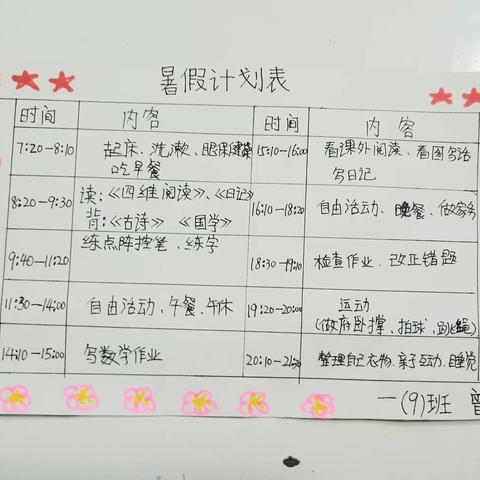 暑假计划表
时间 内容 时间 内容
7:20-8:10 起床、洗漱、眼保健操 15:10-16:00 看课外阅读、看图写话
吃早餐 写日记
8:20-9:30 读:《四维阅读》、《日记》 16:10-18:20 自由活动、晚餐、做家务
背:《古诗》、《国学》
9:40-11:20 练点阵控笔、练字 18:30-19:10 检查作业、改正错题
11:30-14:00 自由活动、午餐、午休 19:20-20:00 运动
(做俯卧撑、拍球、跳绳)
14:10-15:00 写数学作业 20:10-21:30 整理自己衣物、亲子互动、睡觉
一(9)班 曾